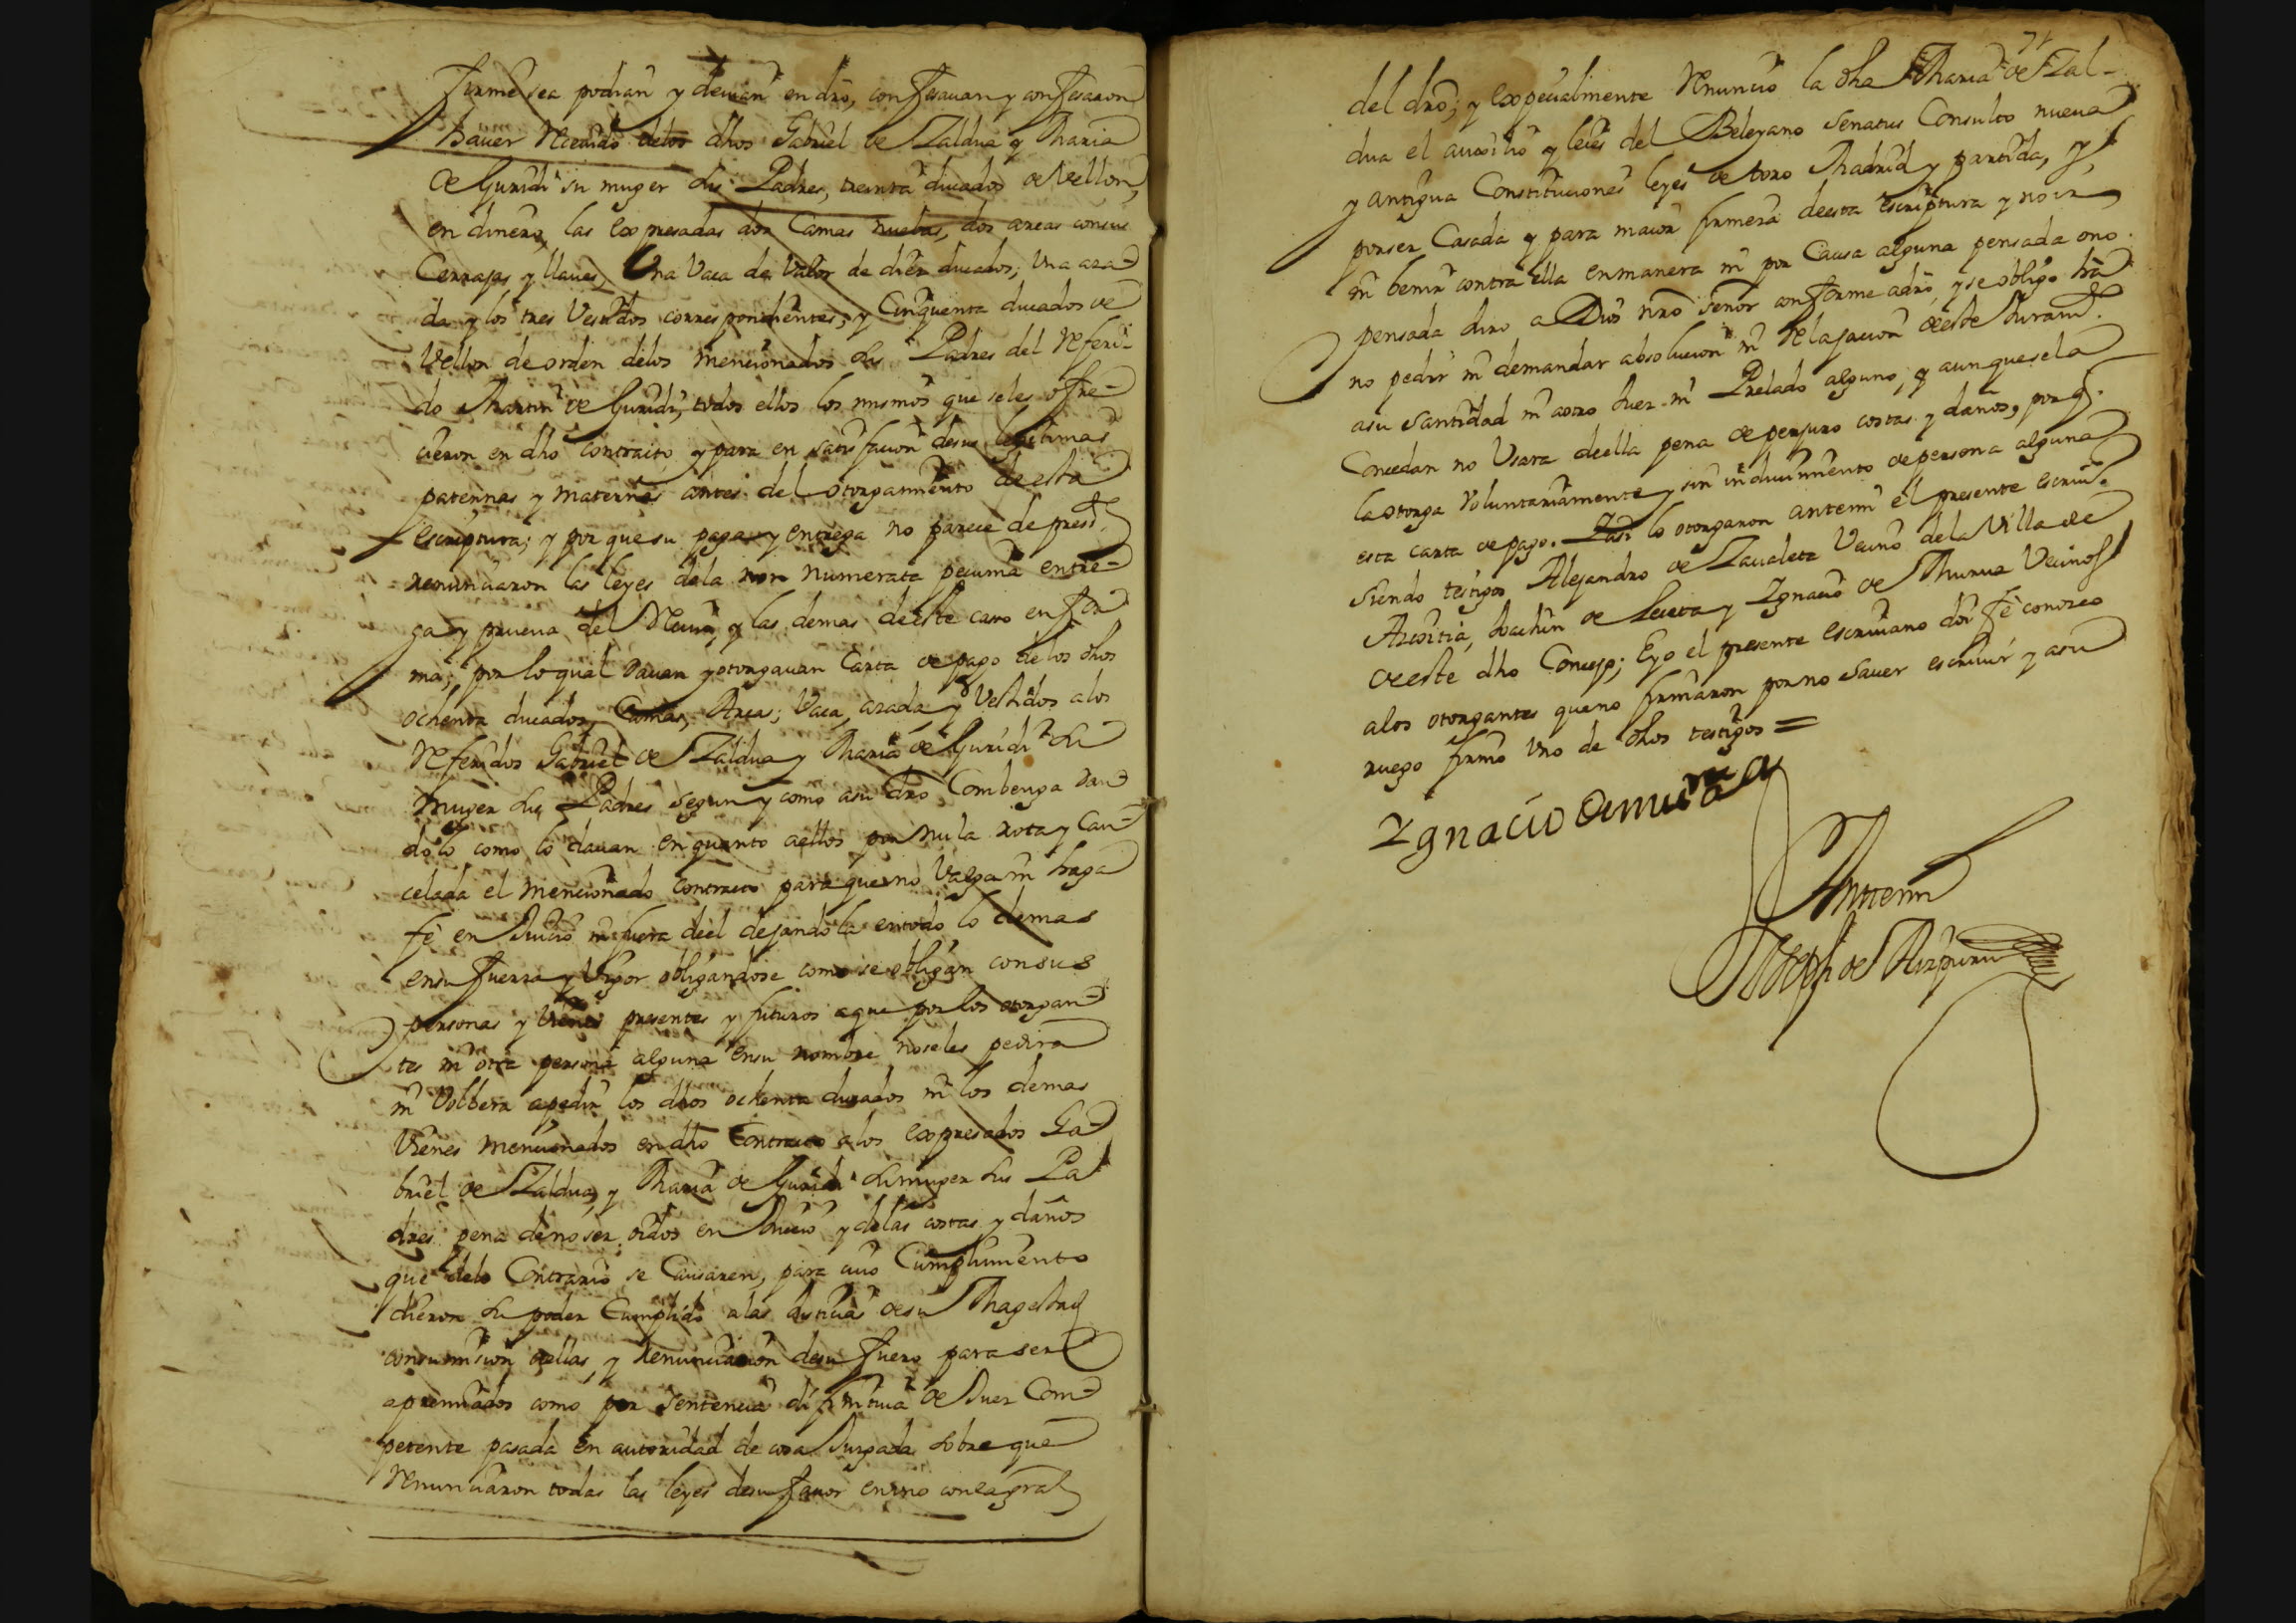 firme sea podian y devian en dro, confesavan y confesaron
haver Recivido delos dhos Gabriel de Zaldua y Maria
de Guridi su muger sus Padres, treinta ducados de Vellon,
en dinero, las expresadas dos Camas nuebas, dos arcas consus
Cerrajas y llaves, Una Vaca de Valor de diez ducados, Una aza-
da y los tres Vestidos correspondientes, y Cinquenta ducados de
Vellon de orden delos mencionados sus Padres del Referi-
do Martin de Guridi, todos ellos los mismos que seles ofre-
cieron en dho contracto, y para en satisfacion desus legitimas
paternas y maternas antes del otorgamiento deesta
escriptura; y por que su paga y entrega no parece de presste
renunciaron las leyes dela non numerata pecunia entre-
ga y prueva del Recivo, y las demas deeste caso en for
ma; por loqual davan y otorgavan Carta de pago delos dhos
ochenta ducados, Camas, Arcas, Vaca, azada, y Vestidos alos
Referidos Gabriel de Zaldua y Maria de Guridi su
muger sus Padres segun y como asu dro Combenga dan-
dolo como lo davan enquanto aellos por nula rota y Can-
celada el mencionado Contracto para que no Valga ni haga
fe en Juicio ni fuera deel dejandola entodo lo demas
ensu fuerza y Vigor obligandose como se obligan consus
personas y Vienes presentes y futuros aque por los otorgan-
tes ni otra persona alguna ensu nombre noseles pedira
ni Volbera apedir los dhos ochenta ducados ni los demas
Vienes mencionados en dho Contracto alos expresados Ga-
briel de Zaldua, y Maria de Guridi su muger sus Pa-
dres pena denoser oidos en Juicio y delas costas y daños
que delo Contrario se Causaren, para cuio Cumplimiento
dieron su poder Cumplido alas Justicias desu Magestad
consumision aellas, y Renunciacion desu fuero para ser
apremiados como por sentencia difinitiva de Juez Com-
petente pasada en autoridad de cosa Juzgada sobre que
Renunciaron todas las leyes desu favor enuno conlagral
71
del dro; y expecialmente Renuncio la dha Maria de Zal-
dua el auxilio y leies del Beleyano Senatus Consulto nueva
y antigua Constituciones leyes de toro Madrid y partida, y
porser Casada y para maior firmeza deesta escriptura y no ir
ni benir contra ella enmanera ni por Causa alguna pensada ono
pensada Juro a Dios nro señor conforme adro, y se obligo ha
no pedir ni demandar absolucion ni Relajacion deeste Juramto
asu Santidad ni aotro Juez ni Prelado alguno, y aunquesela
Concedan no Usara deella pena de perjuro costas y daños, porq.
la otorga Voluntariamente y sin inducimiento de persona alguna
esta carta de pago. Yasi lo otorgaron antemi el presente escrivo
siendo testigos Alejandro de Zavaleta Vecino dela Villa de
Azcoitia, Joachin de Leceta y Ignacio de Murua Vecinos
deeste dho Concejo; Eyo el presente escrivano doi fe conozco
alos otorgantes queno firmaron por no Saver escrivir y asu
ruego firmo Uno de dhos testigos =
Ygnacio demurua
Antemi
Joseph de Aizpuru